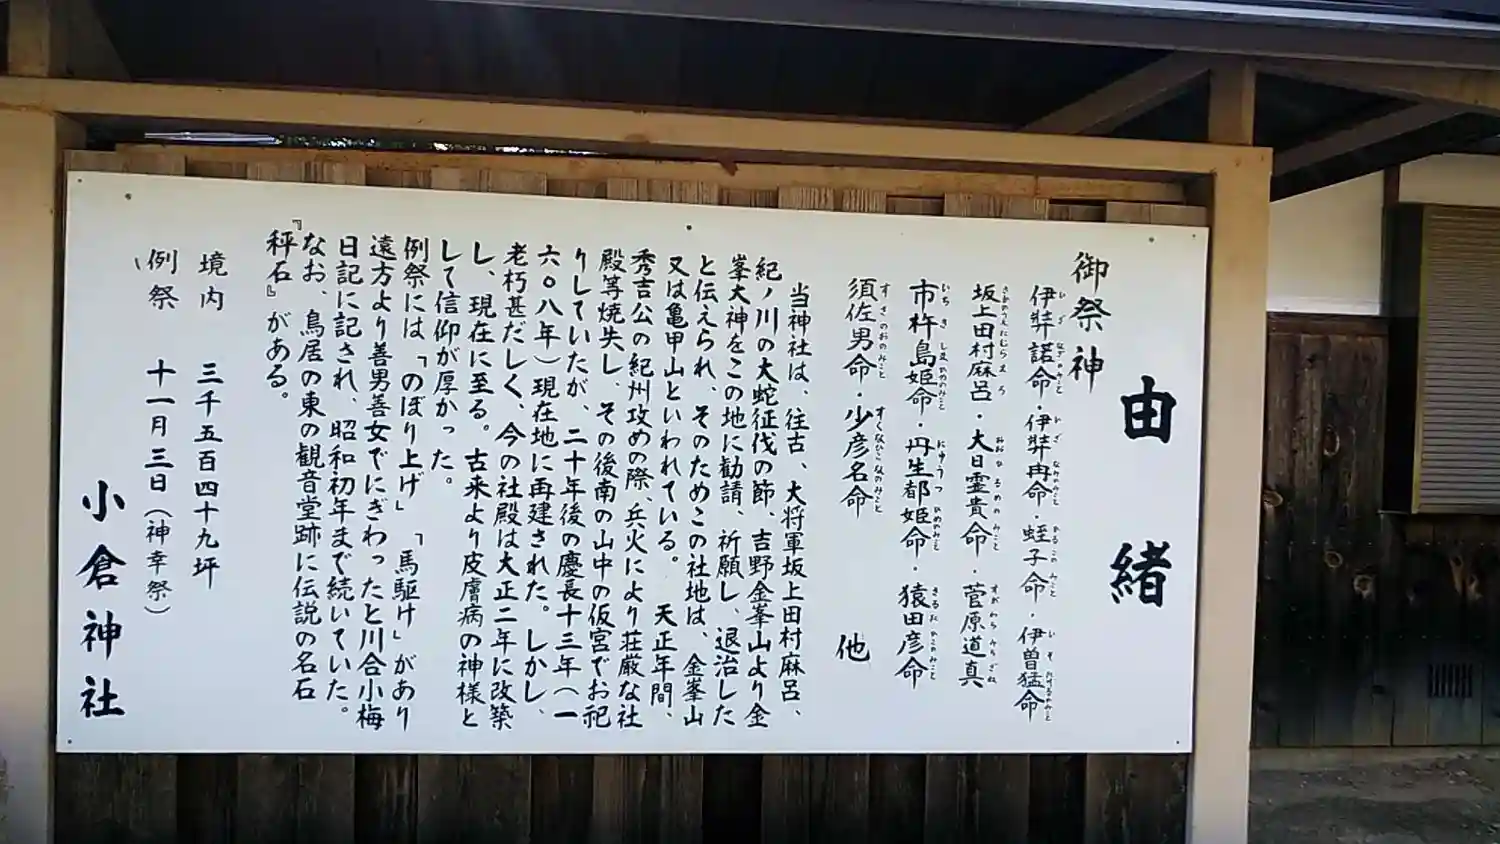 由緒
御祭神
伊弉諾命・伊弉冉命・蛭子命・伊曽猛命
坂上田村麻呂・大日霊貴命・菅原道真
市杵島姫命・丹生都姫命・猿田彦命
須佐男命・少彦名命　他
当神社は、往古、大将軍坂上田村麻呂、
紀ノ川の大蛇征伐の節、吉野金峯山より金
峯大神をこの地に勧請、祈願し、退治した
と伝えられ、そのためこの社地は、金峯山
又は亀甲山といわれている。　天正年間、
秀吉公の紀州攻めの際、兵火により荘厳な社
殿等焼失し、その後南の山中の仮宮でお祀
りしていたが、二十年後の慶長十三年（一
六〇八年）現在地に再建された。しかし、
老朽甚だしく、今の社殿は大正二年に改築
し、現在に至る。古来より皮膚病の神様と
して信仰が厚かった。
例祭には「のぼり上げ」「馬駆け」があり
遠方より善男善女でにぎわったと川合小梅
日記に記され、昭和初年まで続いていた。
なお、鳥居の東の観音堂跡に伝説の名石
『秤石』がある。
境内　三千五百四十九坪
例祭　十一月三日（神幸祭）
小倉神社